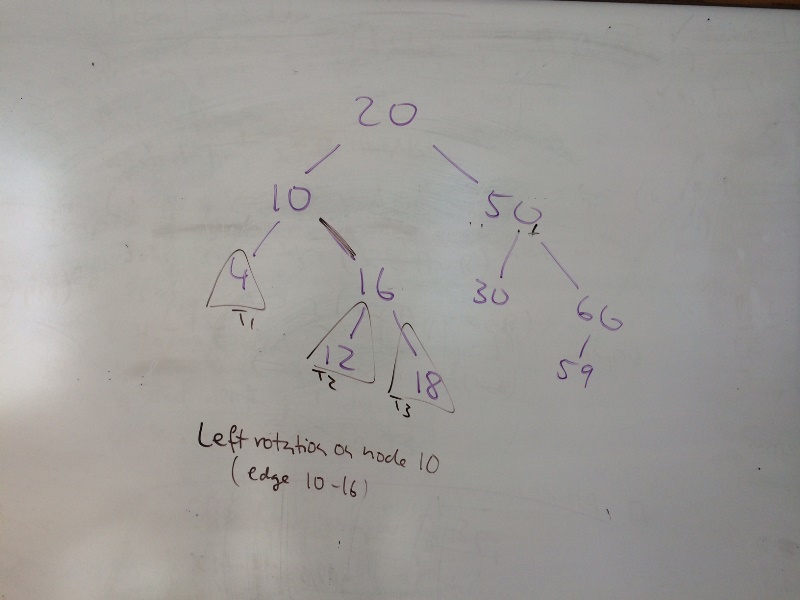 20
10 50
4 16 30 66
T1
12 18 59
T2 T3
Left rotation on node 10
(edge 10-16)